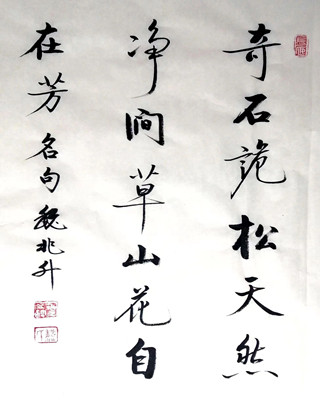 奇石诡松天然
净涧草山花自
在芳 名句 魏兆升